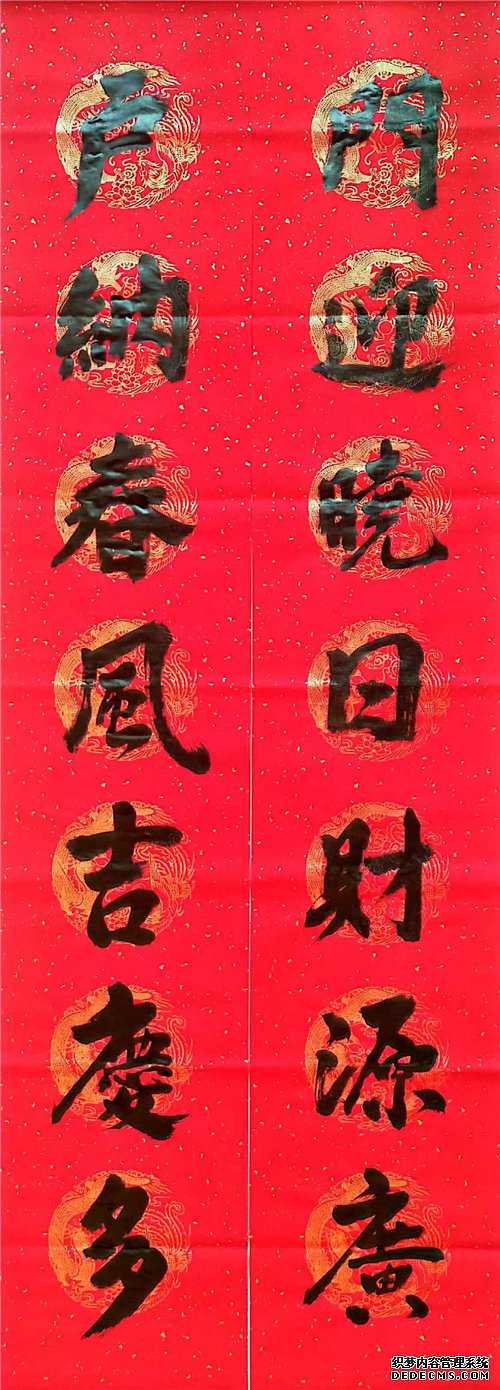 門迎曉日財源廣
户納春風吉慶多
织梦内容管理系统
DEDECMS.COM